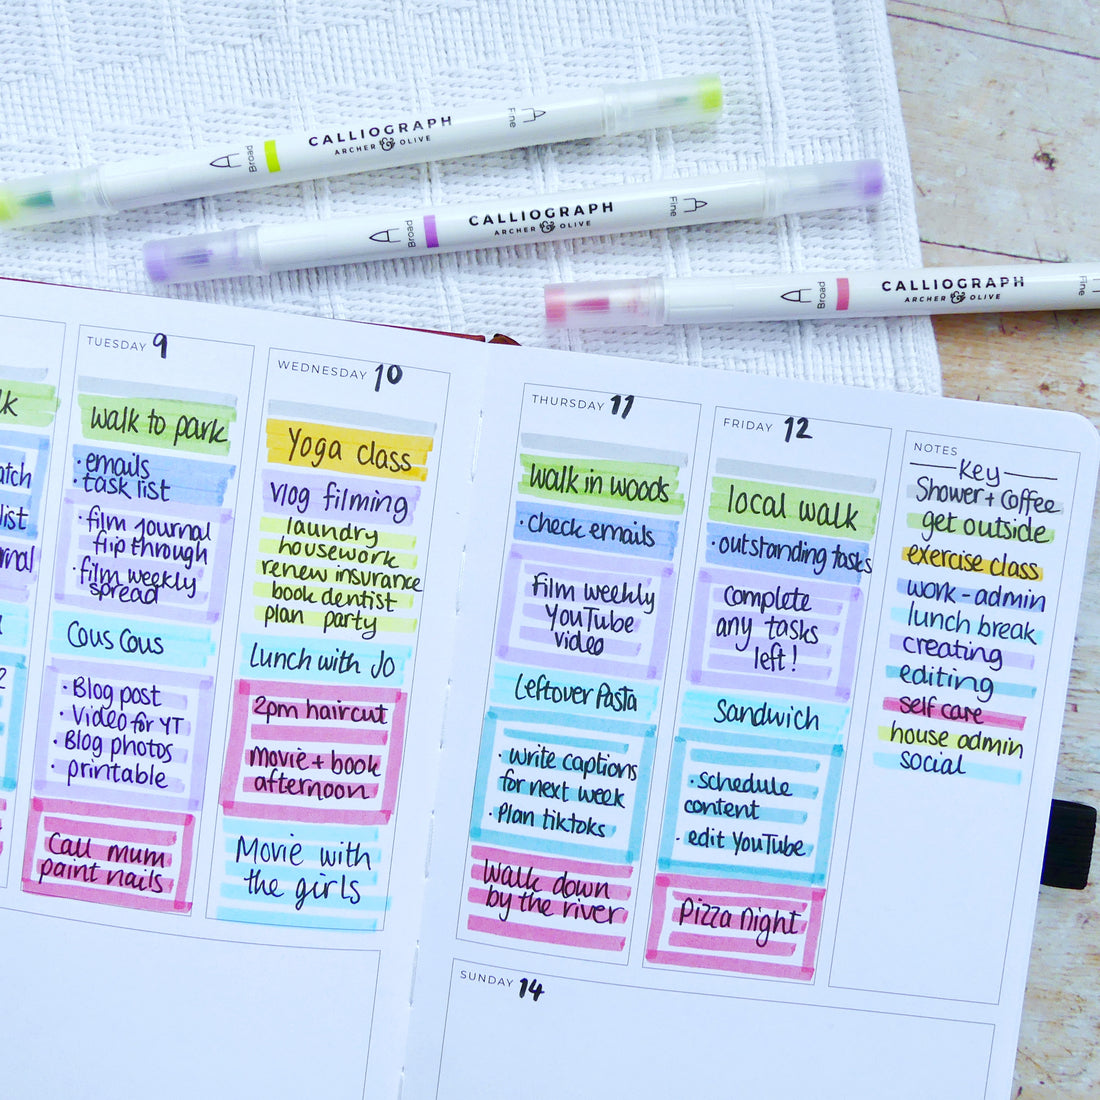 CALLIOGRAPH
ARCHER & OLIVE
Broad
Fine
CALLIOGRAPH
ARCHER & OLIVE
Broad
Fine
CALLIOGRAPH
ARCHER & OLIVE
Broad
Fine
TUESDAY 9
walk to park
• emails
• task list
• film journal
flip through
• film weekly
spread
Cous Cous
• Blog post
• Video for YT
• Blog photos
• printable
Call mum
paint nails
WEDNESDAY 10
Yoga class
Vlog filming
laundry
housework
renew insurance
book dentist
plan party
Lunch with Jo
2pm haircut
Movie + book
afternoon
Movie with
the girls
THURSDAY 11
walk in woods
• check emails
Film weekly
YouTube
video
Leftover Pasta
• write captions
for next week
• Plan tiktoks
Walk down
by the river
FRIDAY 12
local walk
• outstanding tasks
complete
any tasks
left!
Sandwich
• schedule
content
• edit YouTube
Pizza Night
NOTES
Key
Shower + Coffee
get outside
exercise class
work - admin
lunch break
creating
editing
self care
house admin
social
SUNDAY 14